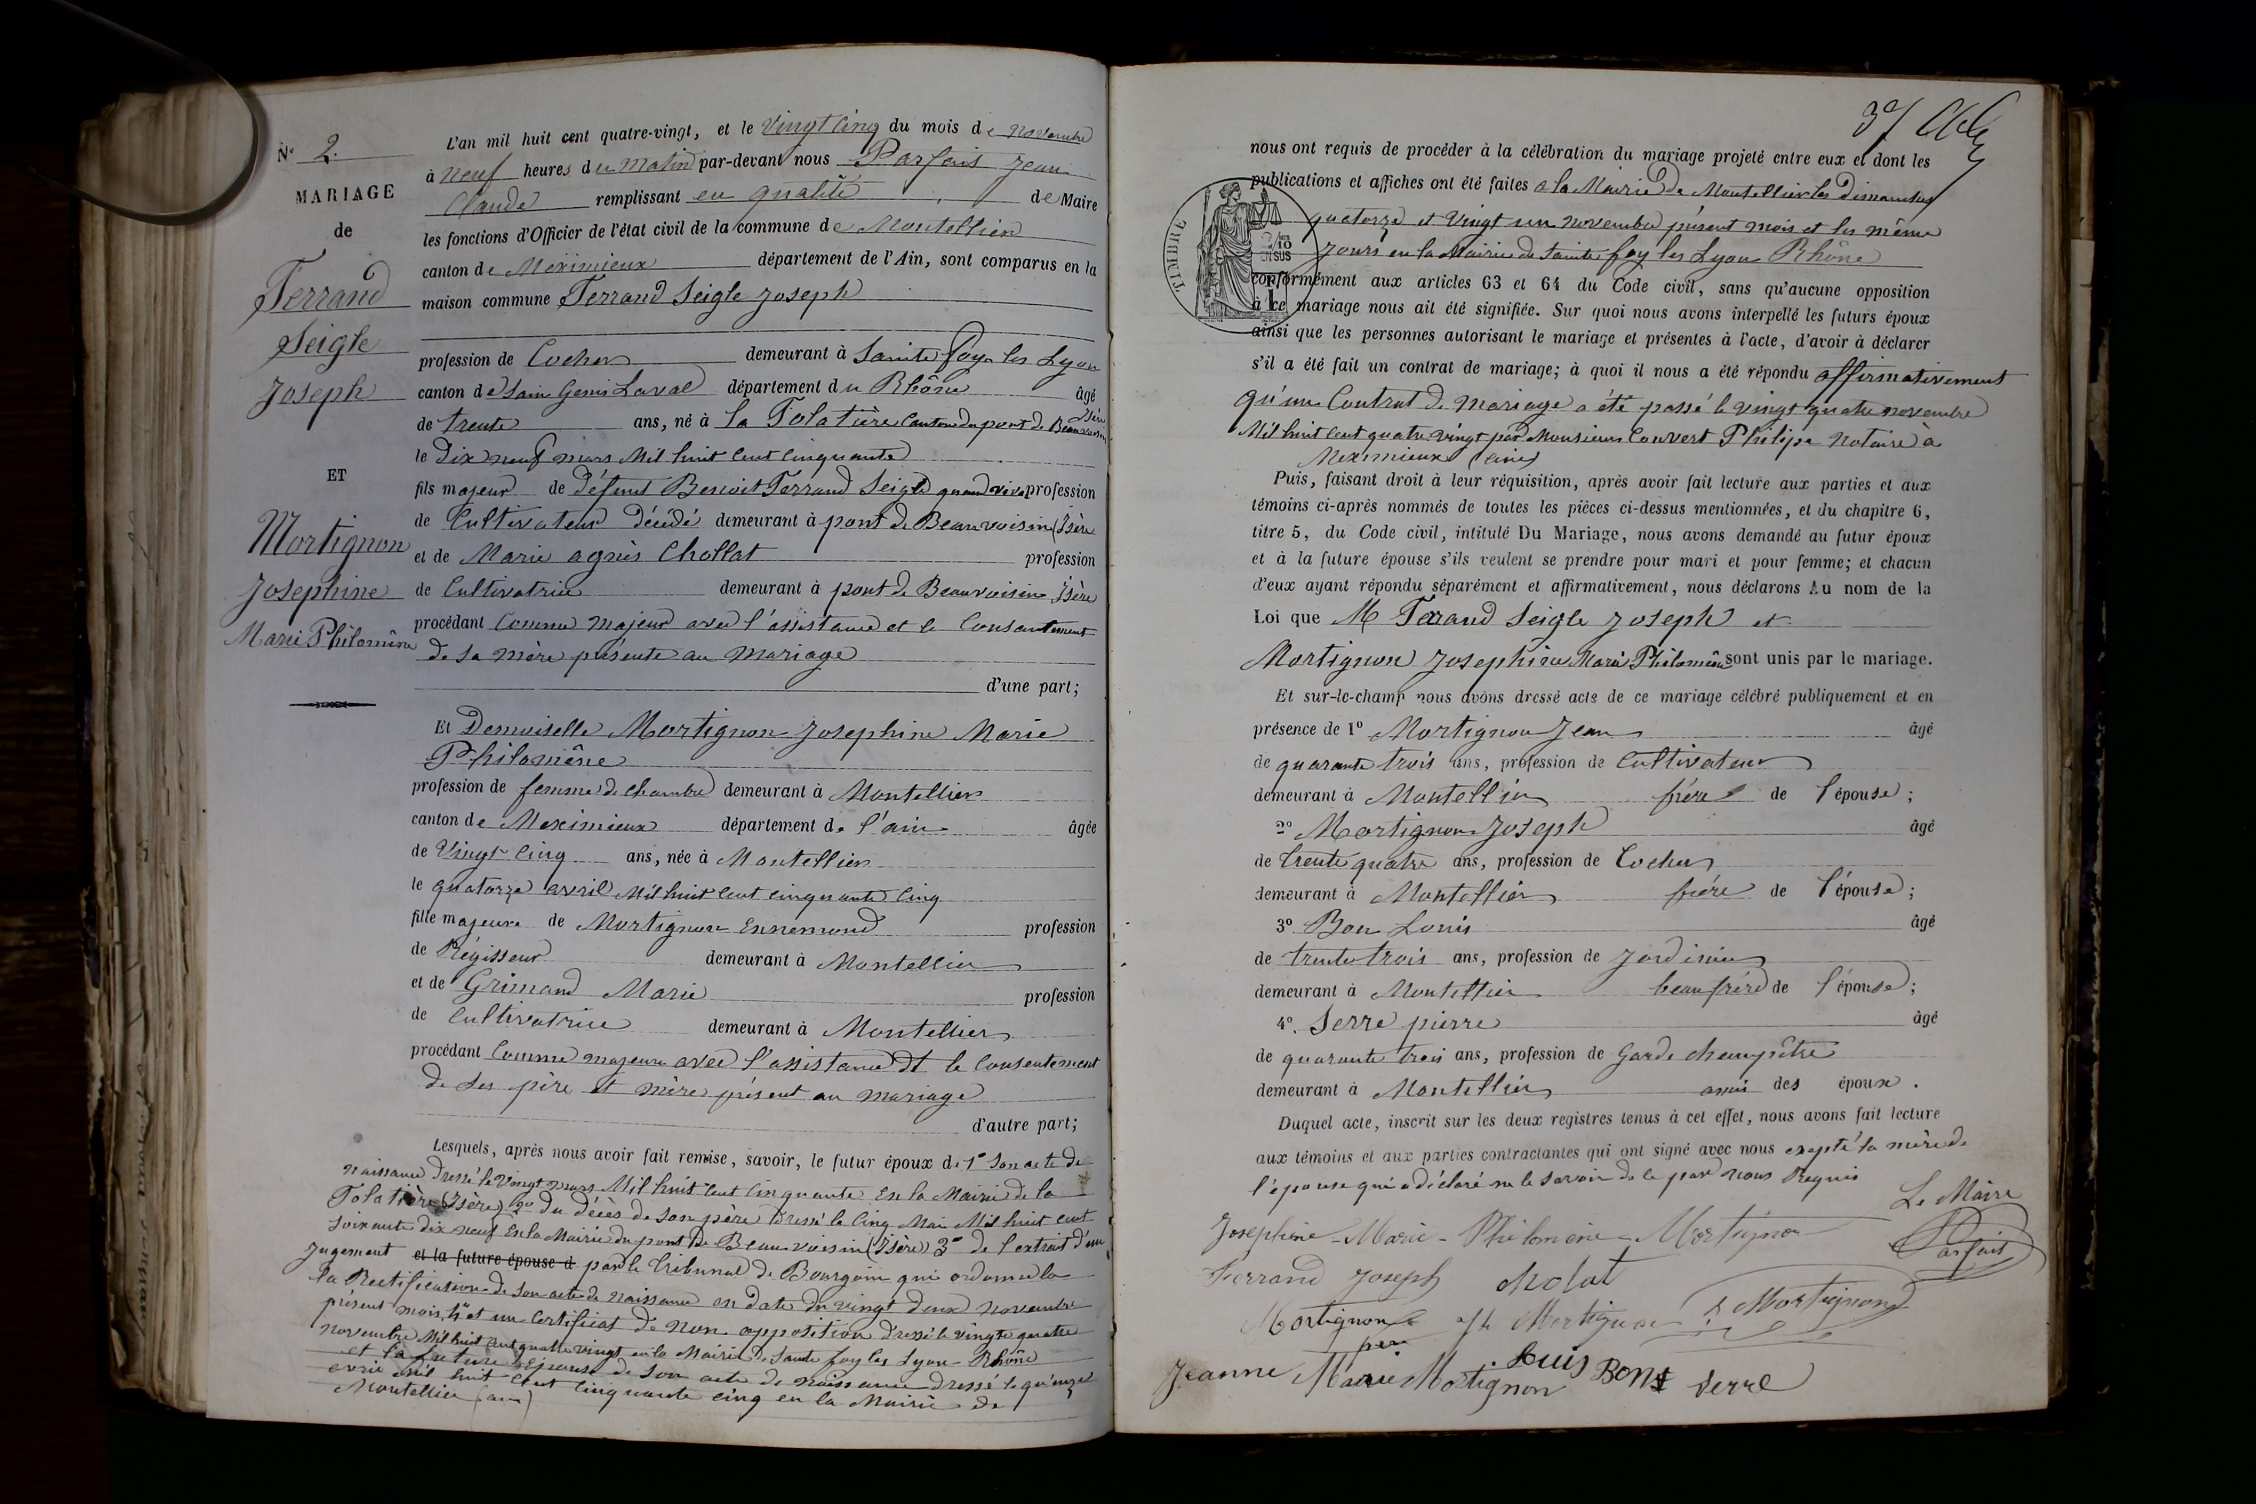 N° 2.
MARIAGE
de
Ferrand
Seigle
Joseph
ET
Mortignon
Josephine
Marie Philomène
L'an mil huit cent quatre-vingt, et le Vingt cinq du mois de novembre
à neuf heures du Matin par-devant nous Parfait Jean
Claude remplissant en qualité de Maire
les fonctions d'Officier de l'état civil de la commune de Montellier
canton de Meximieux département de l'Ain, sont comparus en la
maison commune Ferrand Seigle Joseph
profession de Cocher demeurant à Sainte foy les Lyon
canton de Sain Genis Laval département du Rhône âgé
de trente ans, né à la Folatière Canton du pont de Beauvoisin Isère
le Dix neuf mars Mil huit cent cinquante
fils majeur de défunt Benoit Ferrand Seigle quand vivait profession
de Cultivateur Décédé demeurant à pont de Beauvoisin (Isère
et de Marie agnès Chollat profession
de Cultivatrice demeurant à pont de Beauvoisin Isère
procédant Comme majeur avec l'assistance et le Consentement
de sa mère présente au mariage
d'une part;
Et Demoiselle Mortignon Josephine Marie
Philomène
profession de femme de chambre demeurant à Montellier
canton de Meximieux département de l'ain âgée
de Vingt cinq ans, née à Montellier
le quatorze avril Mil huit cent cinquante cinq
fille majeure de Mortignon Ennemond profession
de Régisseur demeurant à Montellier
et de Grimand Marie profession
de Cultivatrice demeurant à Montellier
procédant Comme majeure avec l'assistance et le Consentement
de ses père et mère présent au mariage
d'autre part;
Lesquels, après nous avoir fait remise, savoir, le futur époux de 1° Son acte de
naissance Dressé le Vingt mars Mil huit cent cinquante En la Mairie de la
Folatière (Isère) 2° du Décès de son père Dressé le cinq Mai Mil huit cent
soixante dix neuf En la Mairie du pont de Beauvoisin (Isère) 3° de l'extrait d'un
Jugement et la future épouse d par le Tribunal de Bourgoin qui ordonne la
la Rectification de son acte de naissance en date du vingt deux novembre
présent mois, 4° et un Certificat de non opposition Dressé le vingt quatre
novembre Mil huit cent quatre vingt en la Mairie De Sainte foy les Lyon Rhône
et la future épouse de Son acte de naissance dressé le quinze
avril mil huit cent cinquante cinq en la Mairie de
Montellier (ain)
nous ont requis de procéder à la célébration du mariage projeté entre eux et dont les
publications et affiches ont été faites a la Mairie de Montellier les dimanches
TIMBRE
quatorze et Vingt un novembre présent mois et les même
Jours en la Mairie de Sainte foy les Lyon Rhône
conformément aux articles 63 et 64 du Code civil, sans qu'aucune opposition
à ce mariage nous ait été signifiée. Sur quoi nous avons interpellé les futurs époux
ainsi que les personnes autorisant le mariage et présentes à l'acte, d'avoir à déclarer
s'il a été fait un contrat de mariage; à quoi il nous a été répondu affirmativement
qu'un Contrat de mariage a été passé le vingt quatre novembre
Mil huit cent quatre vingt par Monsieur Convert Philipe notaire à
Meximieux (ain)
Puis, faisant droit à leur réquisition, après avoir fait lecture aux parties et aux
témoins ci-après nommés de toutes les pièces ci-dessus mentionnées, et du chapitre 6,
titre 5, du Code civil, intitulé Du Mariage, nous avons demandé au futur époux
et à la future épouse s'ils veulent se prendre pour mari et pour femme; et chacun
d'eux ayant répondu séparément et affirmativement, nous déclarons Au nom de la
Loi que M Ferrand Seigle Joseph et
Mortignon Josephine Marie Philomène sont unis par le mariage.
Et sur-le-champ nous avons dressé acte de ce mariage célébré publiquement et en
présence de 1° Mortignon Jean âgé
de quarante trois ans, profession de Cultivateur
demeurant à Montellier frère de l'épouse;
2° Mortignon Joseph âgé
de trente quatre ans, profession de Cocher
demeurant à Montellier frère de l'épouse;
3° Bon Louis âgé
de trente trois ans, profession de Jardinier
demeurant à Montellier beau frère de l'épouse;
4°. Serre pierre âgé
de quarante trois ans, profession de Garde champêtre
demeurant à Montellier amis des époux.
Duquel acte, inscrit sur les deux registres tenus à cet effet, nous avons fait lecture
aux témoins et aux parties contractantes qui ont signé avec nous exepté la mère de
l'épouse qui a déclaré ne le savoir de ce par nous Requis
Le Maire
Josephine-Marie-Philomène Mortignon
Parfait
Ferrand Joseph cholat
Mortignon Mortignon J Mortignon
père
Jeanne Marie Mortignon Louis Bon Serre